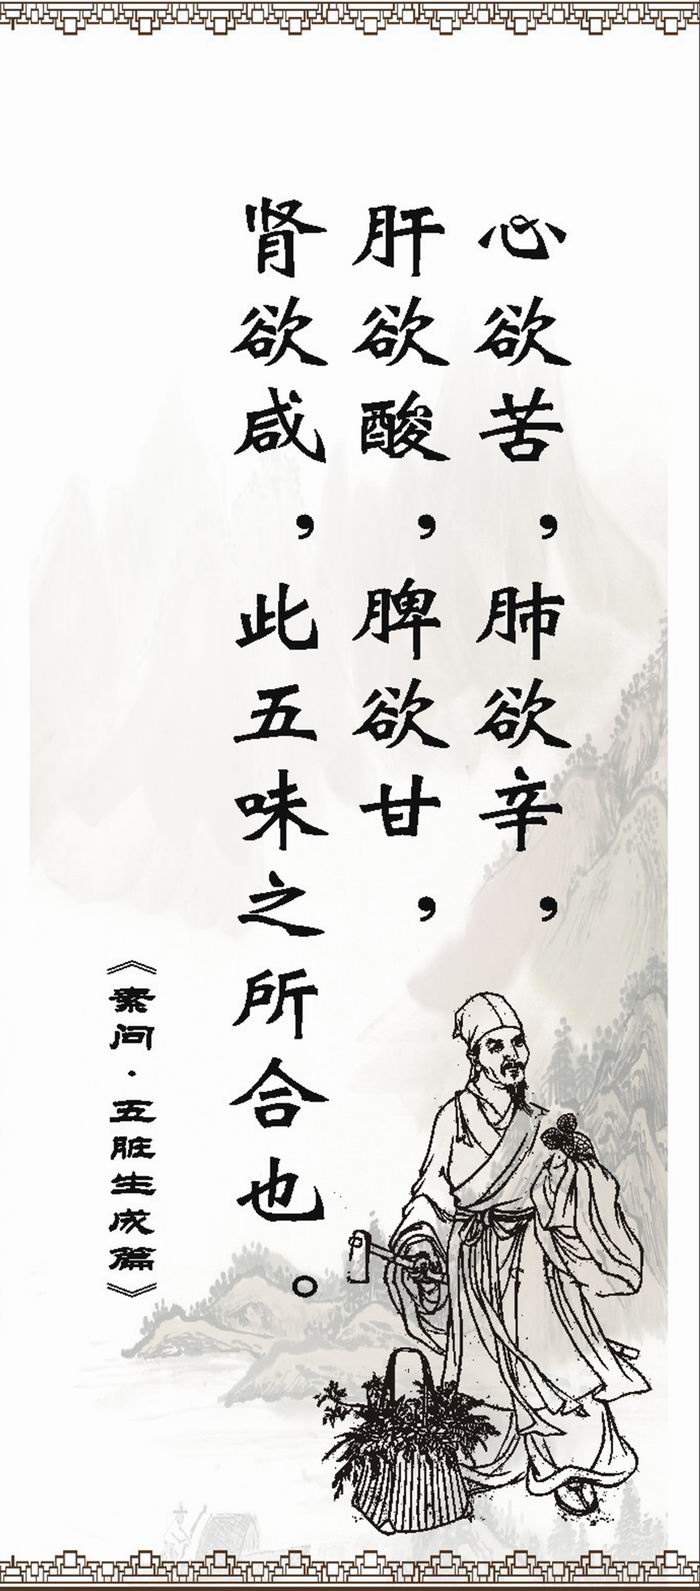 心欲苦，肺欲辛，
肝欲酸，脾欲甘，
肾欲咸，此五味之所合也。
《素问·五脏生成篇》